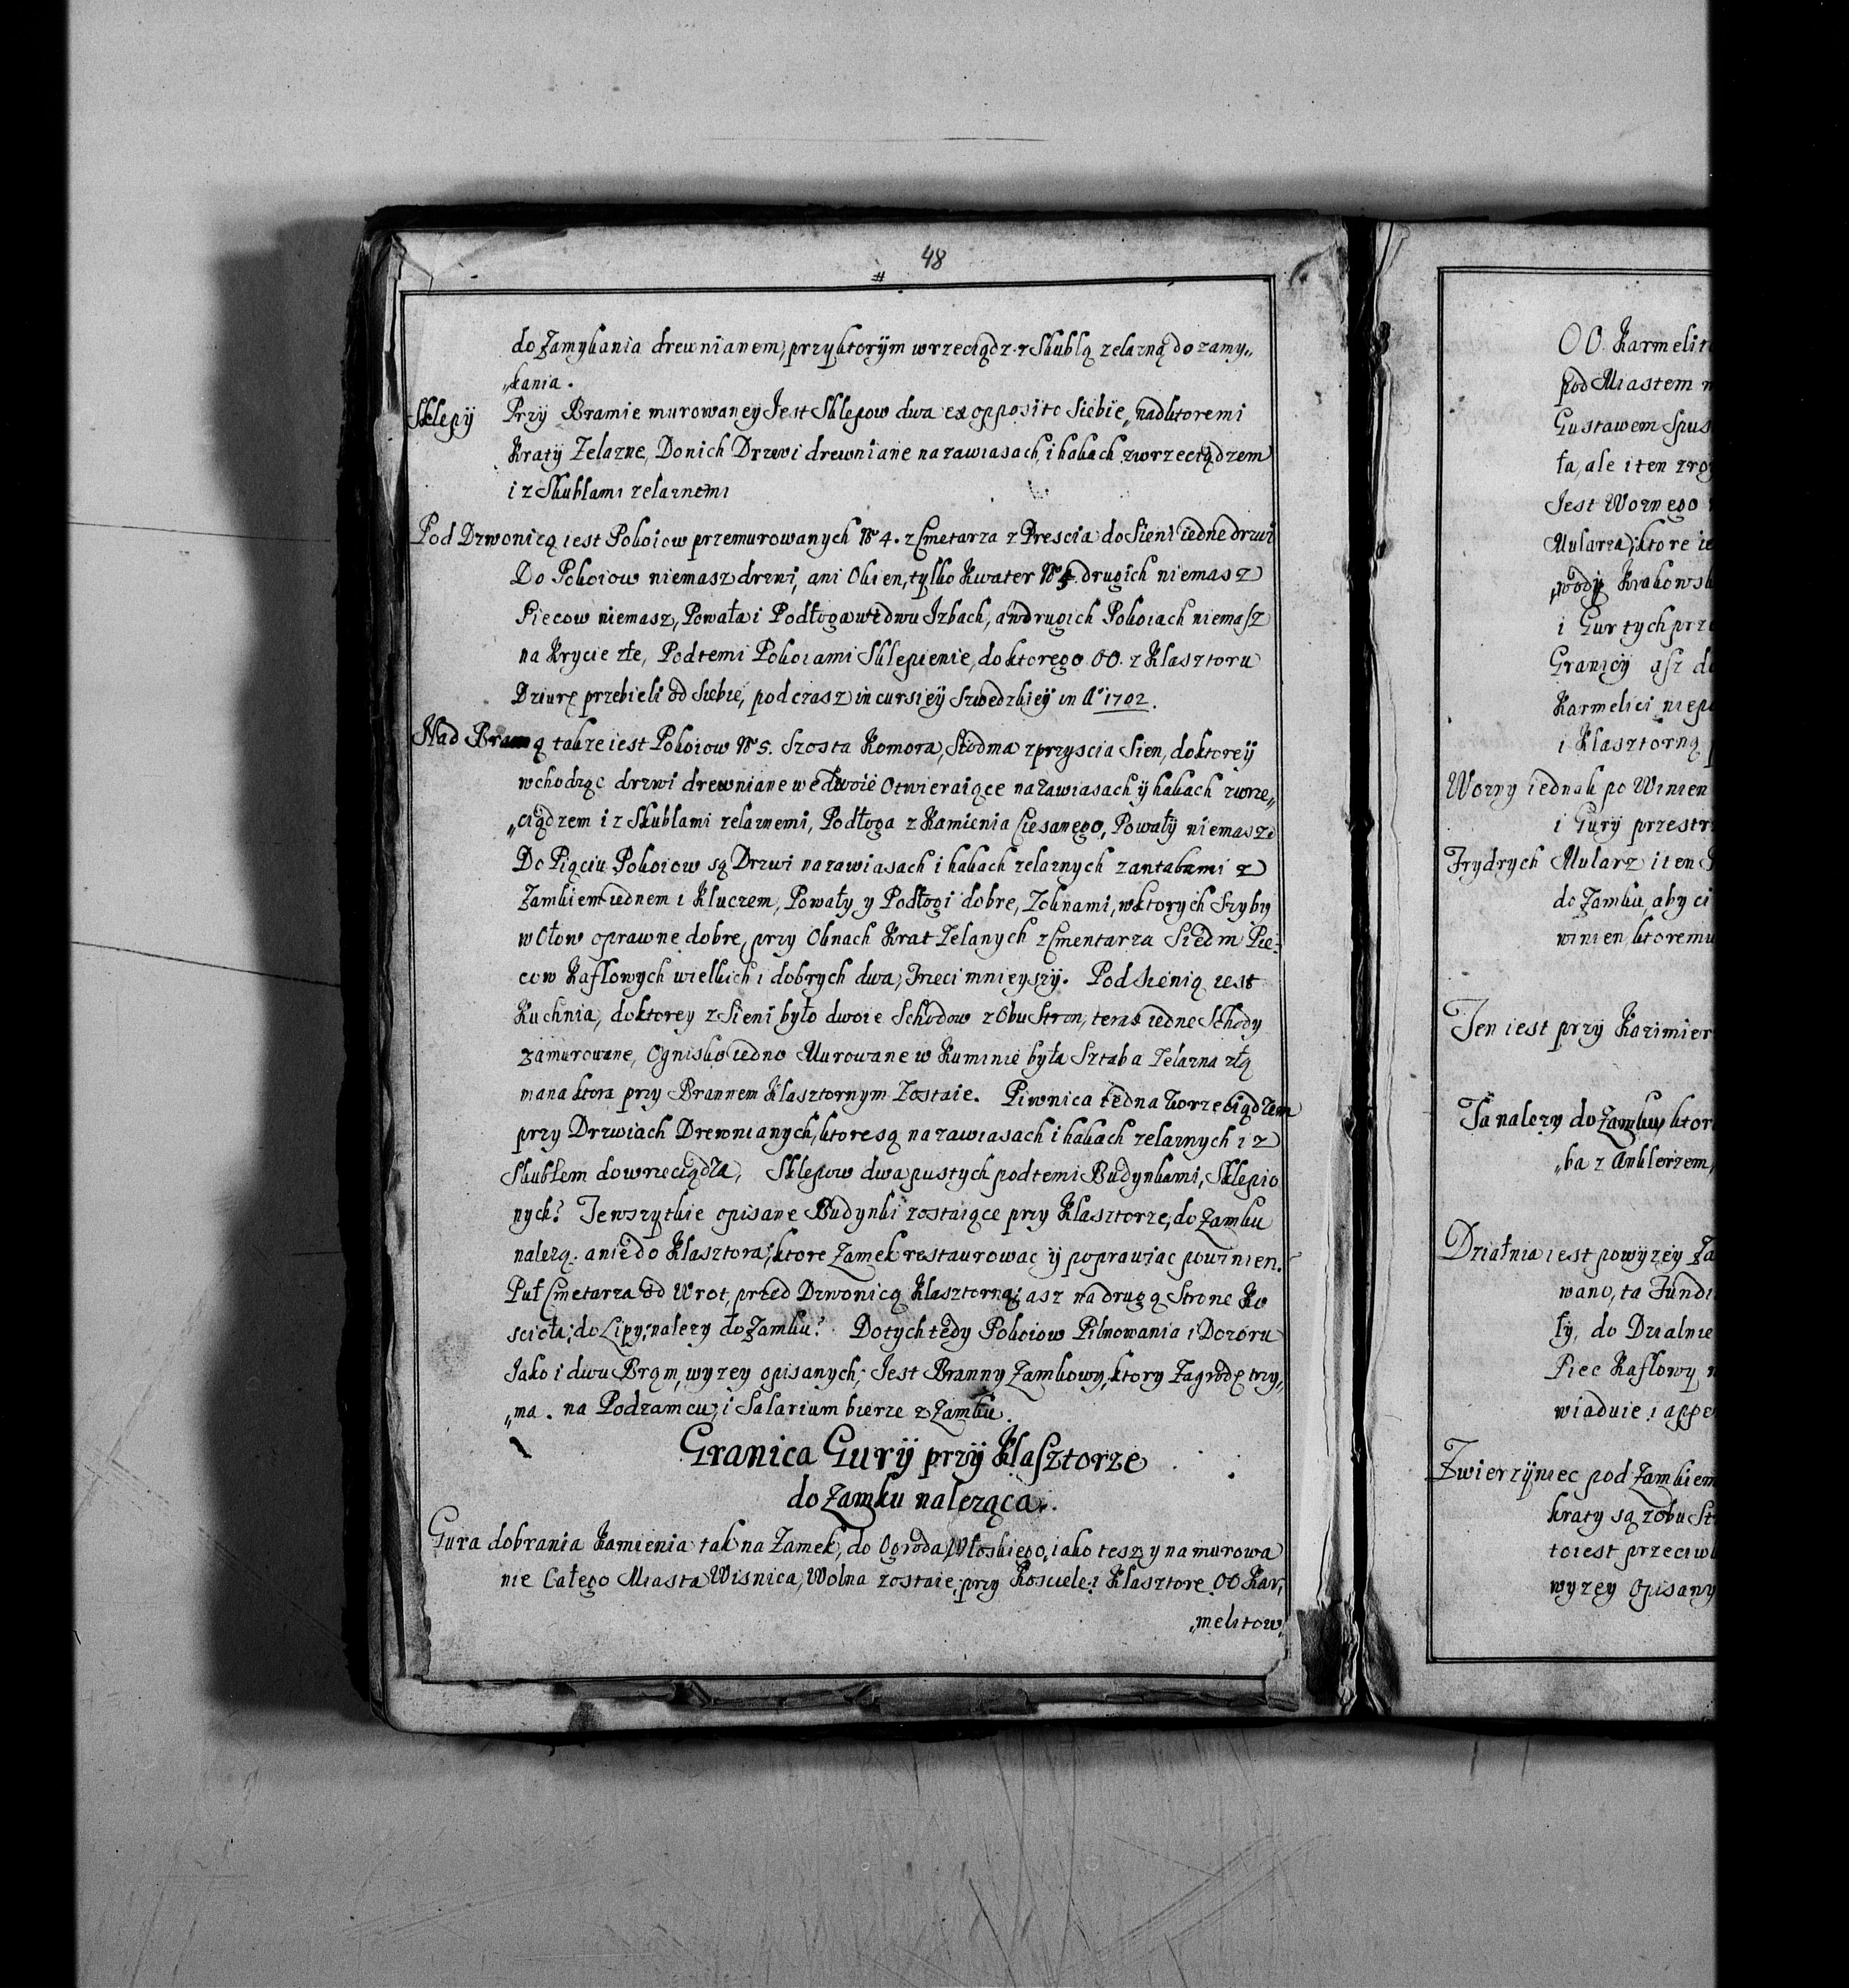 48
#
do Zamykania drewnianem, przyktorÿm wrzeciądz z Skublą zelazną do zamy„
„kania.
Sklepÿ Przÿ Bramie murowaneÿ Jest Sklepow dwa ex opposito Siebie, nadktoremi
Kratÿ Zelazne, Donich Drzwi drewniane nazawiasach, i hakach zwrzeciądzem
i z Skublami zelaznemi
Pod Dzwonicą iest Pokoiow przemurowanych No 4. z Cmetarza z Prescia do Sieni iedne drzwi
Do Pokoiow niemasz drzwi, ani Okien, tylko Kwater No drugich niemasz
Piecow niemasz, Powała i Podłoga wiedwu Izbach, awdrugich Pokoiach niemasz
na Krycie złe, Podtemi Pokoiami Sklepienie, do ktorego OO. z Klasztoru
Dziurę przebieli od Siebie, podczasz incursieÿ Szwedzkieÿ in Ao 1702.
Nad Bramą takze iest Pokoiow No 5. Szosta Komora, Siodma zprzyscia Sien, doktoreÿ
wchodząc drzwi drewniane wedwoie Otwieraiące nazawiasach ÿ hakach zwrze„
„ciądzem i z Skublami zelaznemi, Podłoga z Kamienia Ciesanego, Powałÿ niemasz
Do Piąciu Pokoiow są Drzwi nazawiasach i hakach zelaznych zantabami z
Zamkiem iednem i Kluczem, Powały y Podłogi dobre, Zoknami, wktorych Szyby
w Ołow oprawne dobre, przy Oknach Krat Zelanych z Cmentarza Siedm Pie-
cow Kaflowych wielkich i dobrych dwa, Trzeci mnieyszÿ. Pod Sienią iest
Kuchnia, doktorey z Sieni było dwoie Schodow z Obu Stron, teras iedne Schody
zamurowane, Ognisko iedno Murowane w Kuminie była Sztaba Zelazna złą
mana ktora przy Brannem Klasztornym Zostaie. Piwnica iedna Zwrzeciądzem
przy Drzwiach Drewnianych, ktore są nazawiasach i hakach zelaznych i z
Skublem dowrzeciądza, Sklepow dwa pustych podtemi Budynkami, Sklepio
nych? Tewszytkie opisane Budynki zostaiące przy Klasztorze, do Zamku
nalezą. anie do Klasztora, ktore Zamek restaurowac ÿ poprawiac powinien.
Puł Cmetarza od Wrot, przed Dzwonicą Klasztorną, asz na drugą Strone Ko
scioła, do Lipy, nalezy do Zamku? Dotych tedy Pokoiow Pilnowania i Dozoru
Jako i dwu Brąm, wyzey opisanych, Jest Branny Zamkowy, ktory Zagrodę trzy„
„ma. na Podzamcu, i Salarium bierze z Zamku.
Granica Gurÿ przÿ Klasztorze
do Zamku nalezącą.
Gura dobrania Kamienia tak na Zamek, do Ogroda Włoskiego, iako tesz y na murowa
nie Całego Miasta Wisnica, Wolna zostaie, przy Kosciele i Klasztore OO Kar„
„melitow„
OO. Karmelit
pod Miastem
Gustawem Spus
ła, ale i ten
Jest Woznego
Mularza, ktore
„wody Krakowsk
i Gur tych prz
Granicÿ asz
Karmelici
i Klasztorną
Wozny iednak po Winien
i Gurÿ przestr
Frydrych Mularz i ten
do Zamku, aby ci
winien ktoremu
Ten iest przÿ Kazimier
Ta nalezy do Zamku, ktor
„ka z Anklerzem,
Działnia iest powyzeÿ Za
wano, ta Fund
łÿ, do Dzialnie
Piec Kaflowy
wiaduie i appe
Zwierzÿniec pod Zamkiem
kraty są zobu St
toiest przeciw
wyzey Opisany